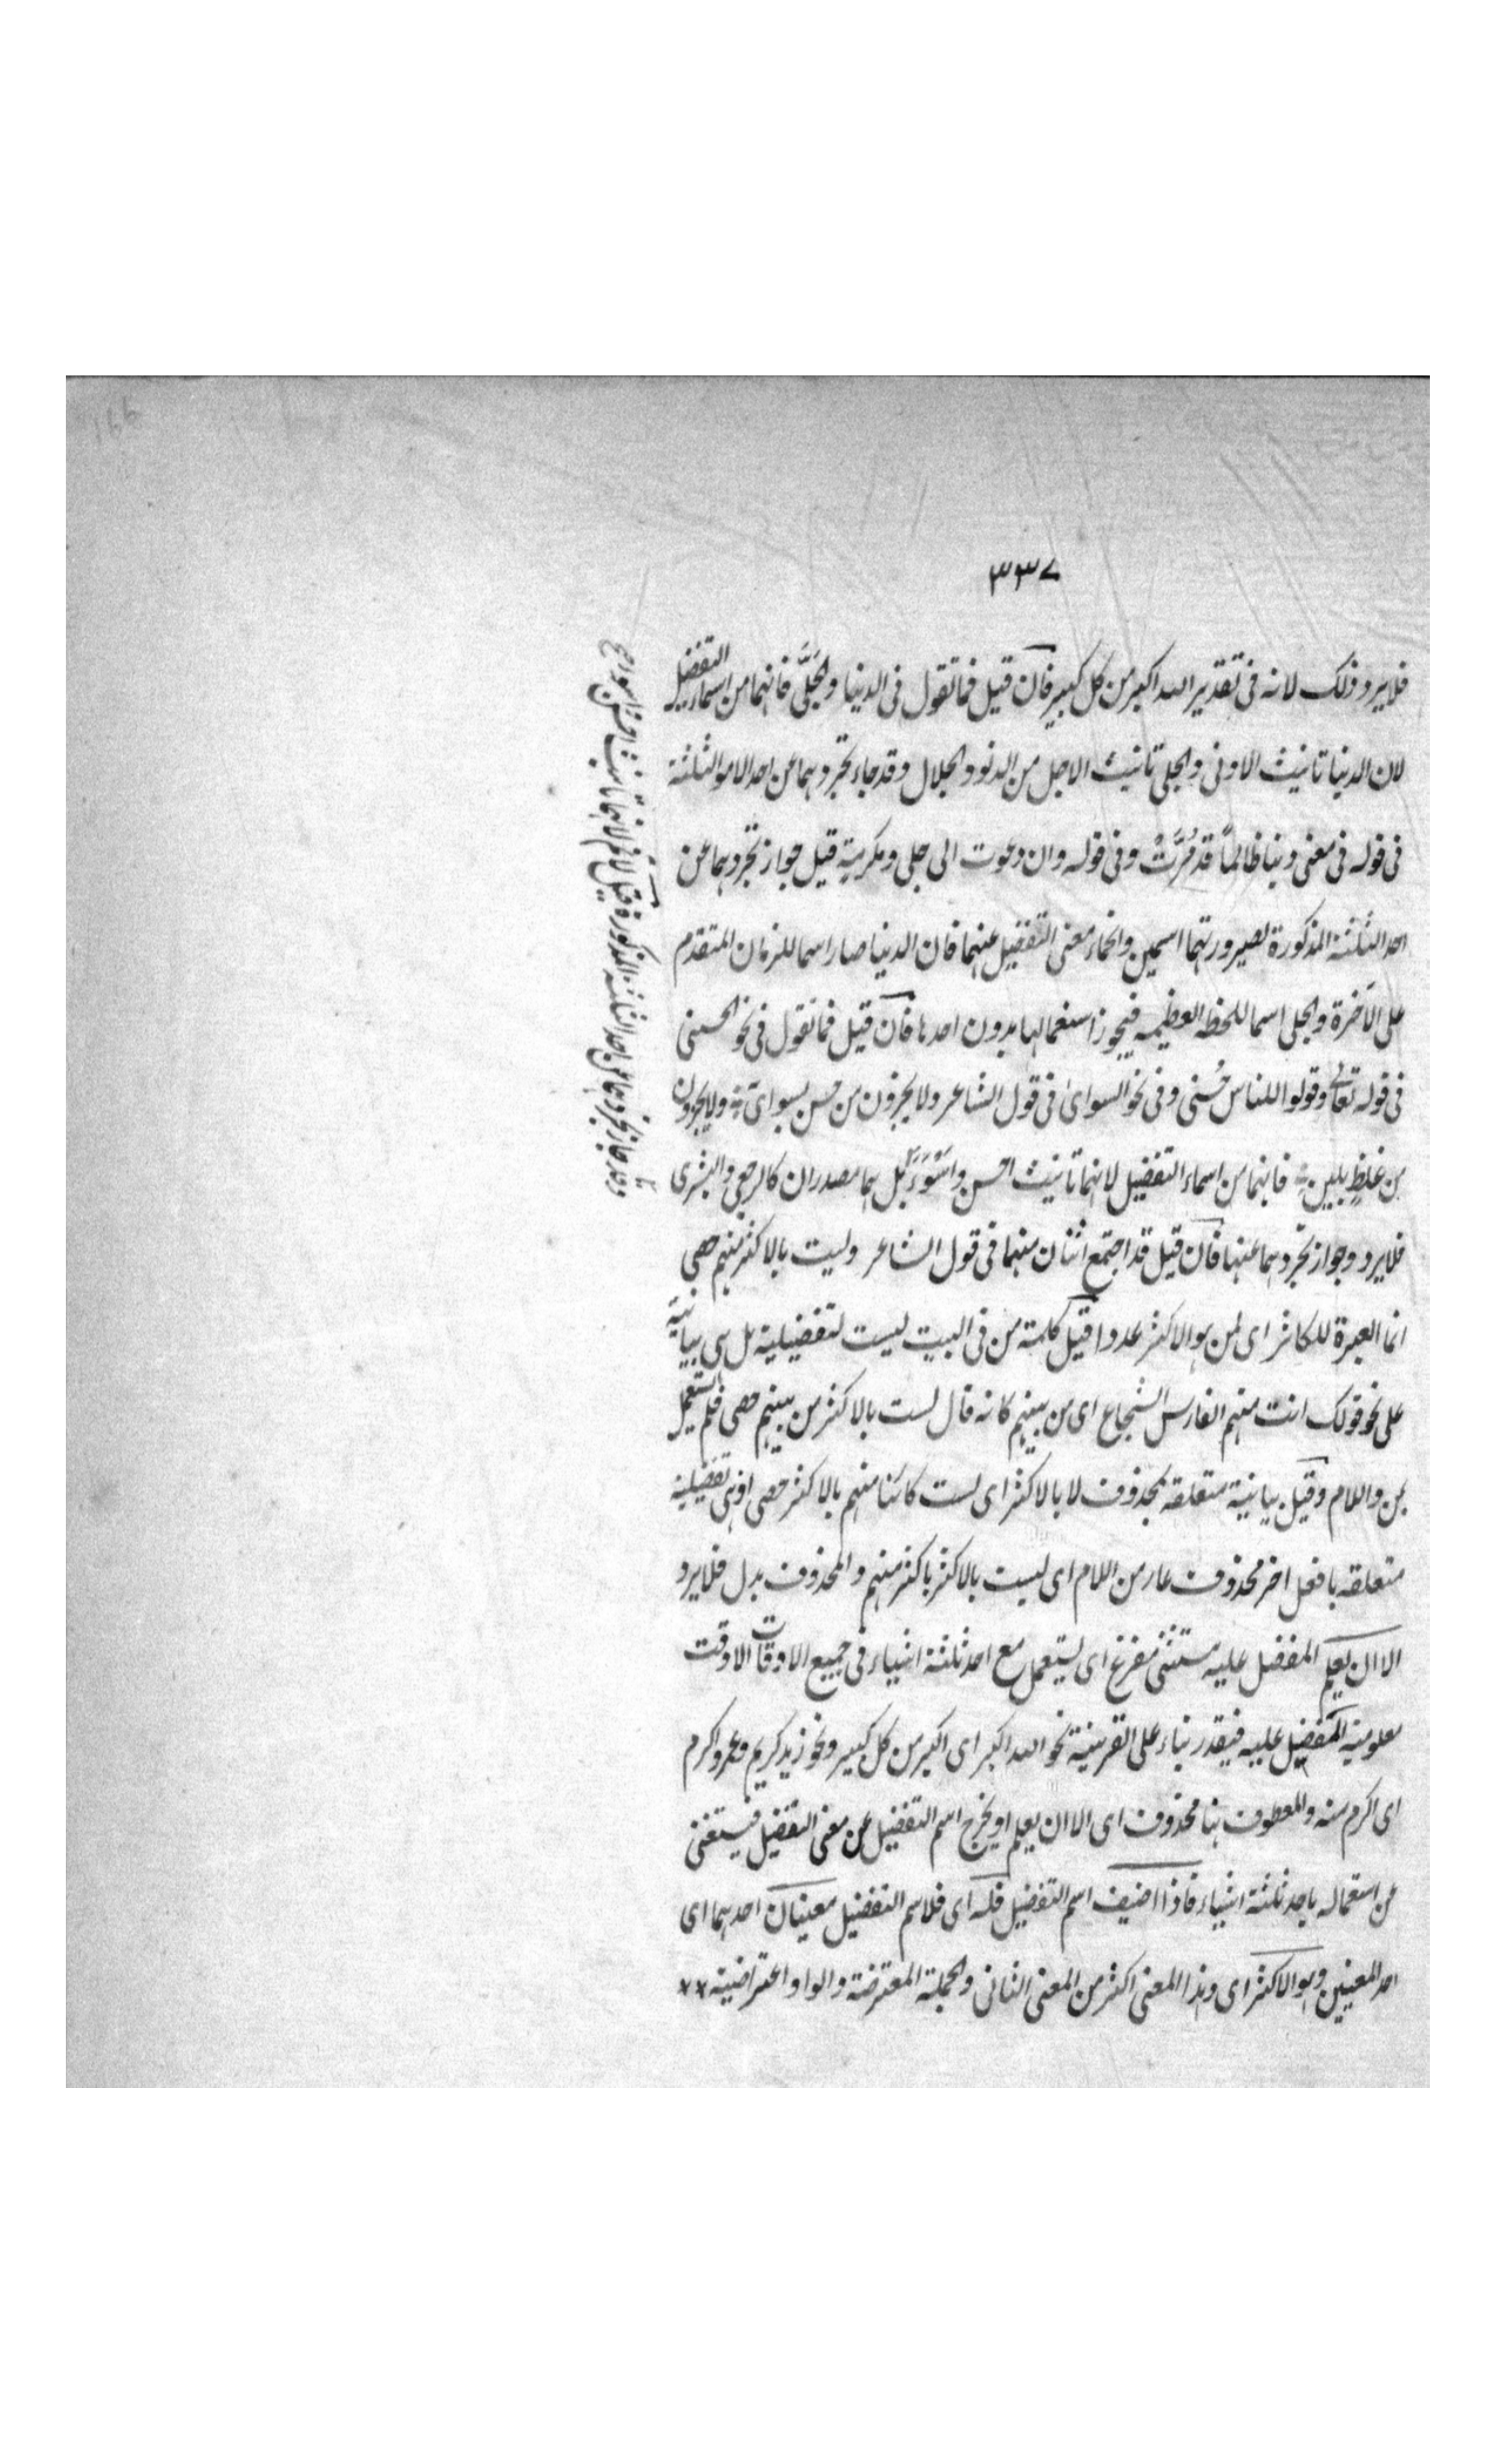 ٣٣٧
فلا يرد ذلك لانه فى تقدير الله اكبر من كل كبير فان قيل فما تقول فى الدنيا والجُلَّى فانهما من اسماء التفضيل
لان الدنيا تانيث الادنى والجلى تانيث الاجل من الدنو والجلال وقد جاء تجردهما عن احد الامور الثلثة
فى قوله فى معنى دنيا ظالماً قد مُرَّتْ وفى قوله وان دعوت الى جلى ومكرمة قيل جواز تجردهما عن
احد الثلثة المذكورة لصيرورتهما اسمين وانمحاء معنى التفضيل عنهما فان الدنيا صار اسما للزمان المتقدم
على الآخرة والجلى اسما للخطة العظيمة فيجوز استعمالها بدون احدها فان قيل فما تقول فى نحو الحسنى
فى قوله تعالى وقولوا للناس حُسنى وفى نحو السواى فى قول الشاعر ولا يجزون من حسن بسواى ولا يجزون
من غلظٍ بلين فانهما من اسماء التفضيل لانهما تانيث احسن واَسْوَءَ بل هما مصدران كالرجعى والبشرى
فلا يرد وجواز تجردهما عنها فان قيل قد اجتمع اثنان منهما فى قول الشاعر وليت بالاكثر منهم حصى
انما العبرة للكاثر اى لمن هو الاكثر عددا قيل كلمة من فى البيت ليست لتفضيلية بل هى بيانية
على نحو قولك انت منهم الفارس الشجاع اى من بينهم كانه قال لست بالاكثر من بينهم حصى فلم يستعمل
بمن واللام وقيل بيانية متعلقة بمحذوف لا بالاكثر اى لست كائنا منهم بالاكثر حصى او هى تفضيلية
متعلقة بافعل اخر محذوف عار من اللام اى ليست بالاكثر باكثر منهم والمحذوف بدل فلا يرد
الا ان يعلم المفضل عليه مستثنى مفرغ اى يستعمل مع احد ثلثة اشياء فى جميع الاوقات الا وقت
معلومية المفضل عليه فيقدر بناء على القرينة نحو الله اكبر اى اكبر من كل كبير ونحو زيد كريم وعمرو اكرم
اى اكرم منه والمعطوف هنا محذوف اى الا ان يعلم او يخرج اسم التفضيل عن معنى التفضيل فيستغنى
عن استعماله باحد ثلثة اشياء فاذا اضيف اسم التفضيل فله اى فلاسم التفضيل معنيان احدهما اى
احد المعنيين وهو الاكثر اى وهذا المعنى اكثر من المعنى الثانى والجملة المعترضة والواو اعتراضية
وقد جاز تجردها عن احد الثلثة المذكورة قيل لانم لانها تانيث احسن